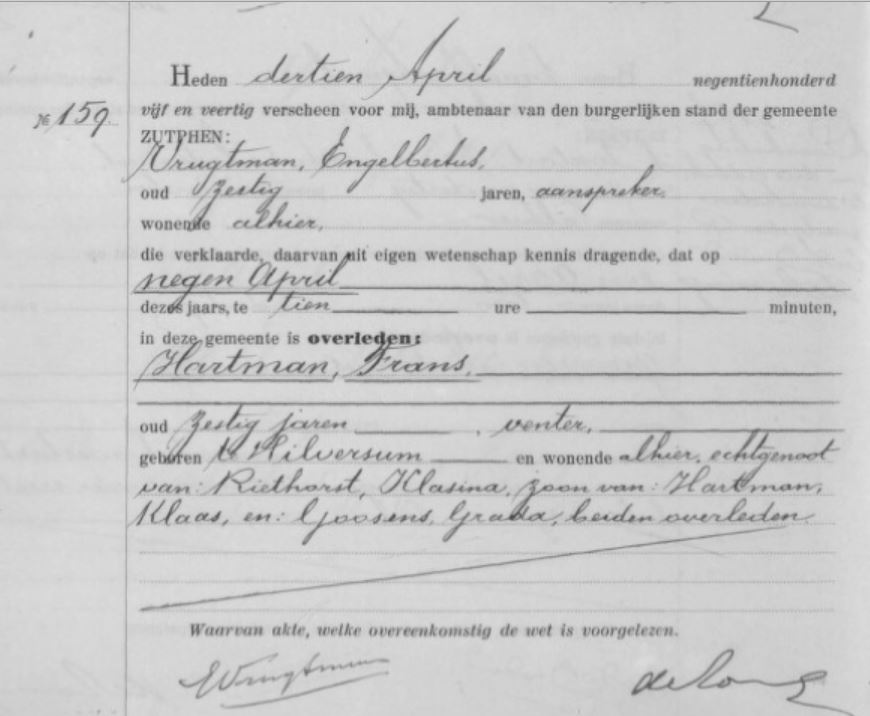 Heden dertien April negentienhonderd
№ 159. vijf en veertig verscheen voor mij, ambtenaar van den burgerlijken stand der gemeente
ZUTPHEN:
Vrugtman, Engelbertus,
oud zestig jaren, aanspreker.
wonende alhier,
die verklaarde, daarvan uit eigen wetenschap kennis dragende, dat op
negen April
dezes jaars, te tien ure minuten,
in deze gemeente is overleden:
Hartman, Frans,
oud zestig jaren, venter,
geboren te Hilversum en wonende alhier, echtgenoot
van: Riethorst, Klasina, zoon van: Hartman,
Klaas, en: Goosens, Grada, beiden overleden.
Waarvan akte, welke overeenkomstig de wet is voorgelezen.
EVrugtman